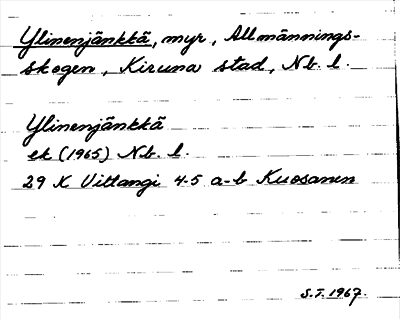 Ylinenjänkkä, myr, Allmännings-
skogen, Kiruna stad, Nb. l.
Ylinenjänkkä
ek (1965) Nb. l.
29 K Vittangi 4-5 a-b Kuosanen
S.T. 1967.